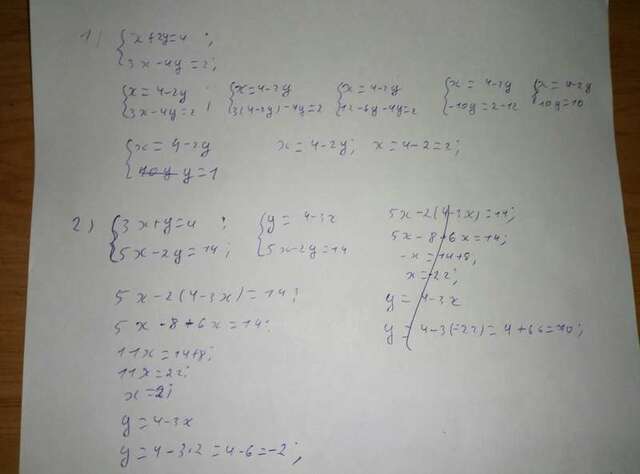 1) { x+2y=4 ;
3x-4y=2;
{ x=4-2y
3x-4y=2 ; { x=4-2y
3(4-2y)-4y=2 { x=4-2y
12-6y-4y=2 { x=4-2y
-10y=2-12 { x=4-2y
10y=10
{ x=4-2y
y=1 x=4-2y; x=4-2=2;
2) { 3x+y=4 ;
5x-2y=14; { y=4-3x
5x-2y=14
5x-2(4-3x)=14;
5x-8+6x=14;
11x=14+8;
11x=22;
x=2;
y=4-3x
y=4-3·2=4-6=-2;
5x-2(4-3x)=14;
5x-8+6x=14;
-x=14+8;
x=-22;
y=4-3x
y=4-3(-22)=4+66=70;